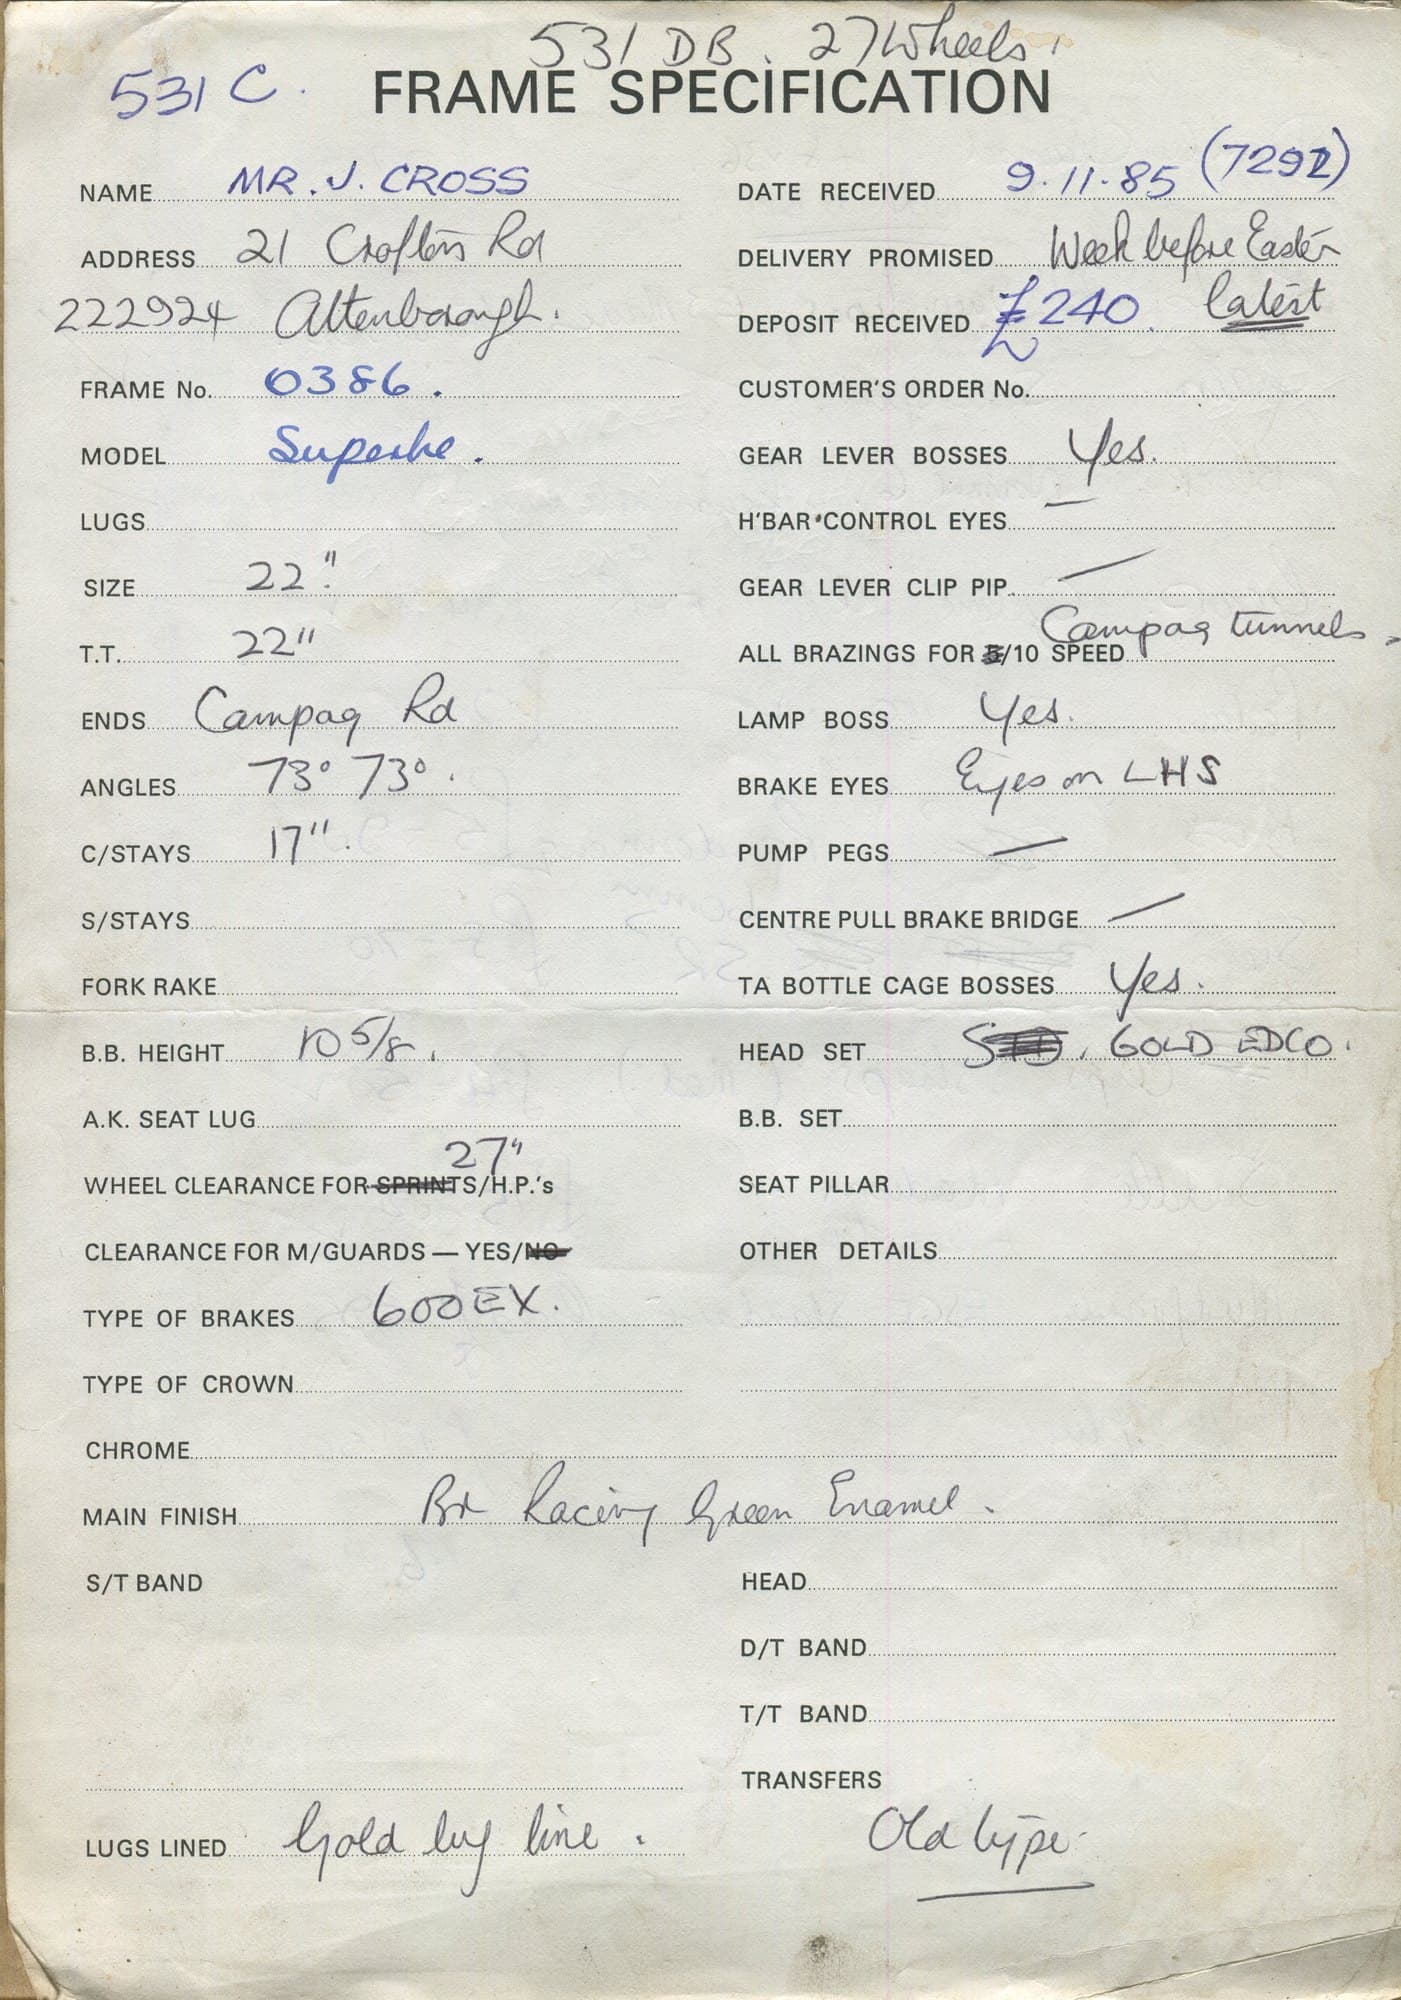 531 DB. 27 Wheels.
531 C.
FRAME SPECIFICATION
NAME MR. J. CROSS
ADDRESS 21 Crofton Rd
222924 Attenborough.
FRAME No. 0386.
MODEL Superbe.
LUGS
SIZE 22".
T.T. 22"
ENDS Campag Rd
ANGLES 73° 73°.
C/STAYS 17".
S/STAYS
FORK RAKE
B.B. HEIGHT 10 5/8.
A.K. SEAT LUG
27"
WHEEL CLEARANCE FOR SPRINTS/H.P.'s
CLEARANCE FOR M/GUARDS — YES/NO
TYPE OF BRAKES 600EX.
TYPE OF CROWN
DATE RECEIVED 9.11.85 (7292)
DELIVERY PROMISED Week before Easter
DEPOSIT RECEIVED £240. latest
CUSTOMER'S ORDER No.
GEAR LEVER BOSSES Yes.
H'BAR CONTROL EYES —
GEAR LEVER CLIP PIP. —
Campag tunnels.
ALL BRAZINGS FOR 5/10 SPEED
LAMP BOSS Yes.
BRAKE EYES Eyes on LHS
PUMP PEGS —
CENTRE PULL BRAKE BRIDGE —
TA BOTTLE CAGE BOSSES Yes.
HEAD SET STD. GOLD EDCO.
B.B. SET
SEAT PILLAR
OTHER DETAILS
CHROME
MAIN FINISH Br Racing Green Enamel.
S/T BAND
HEAD
D/T BAND
T/T BAND
TRANSFERS
Old type.
LUGS LINED Gold lug line.